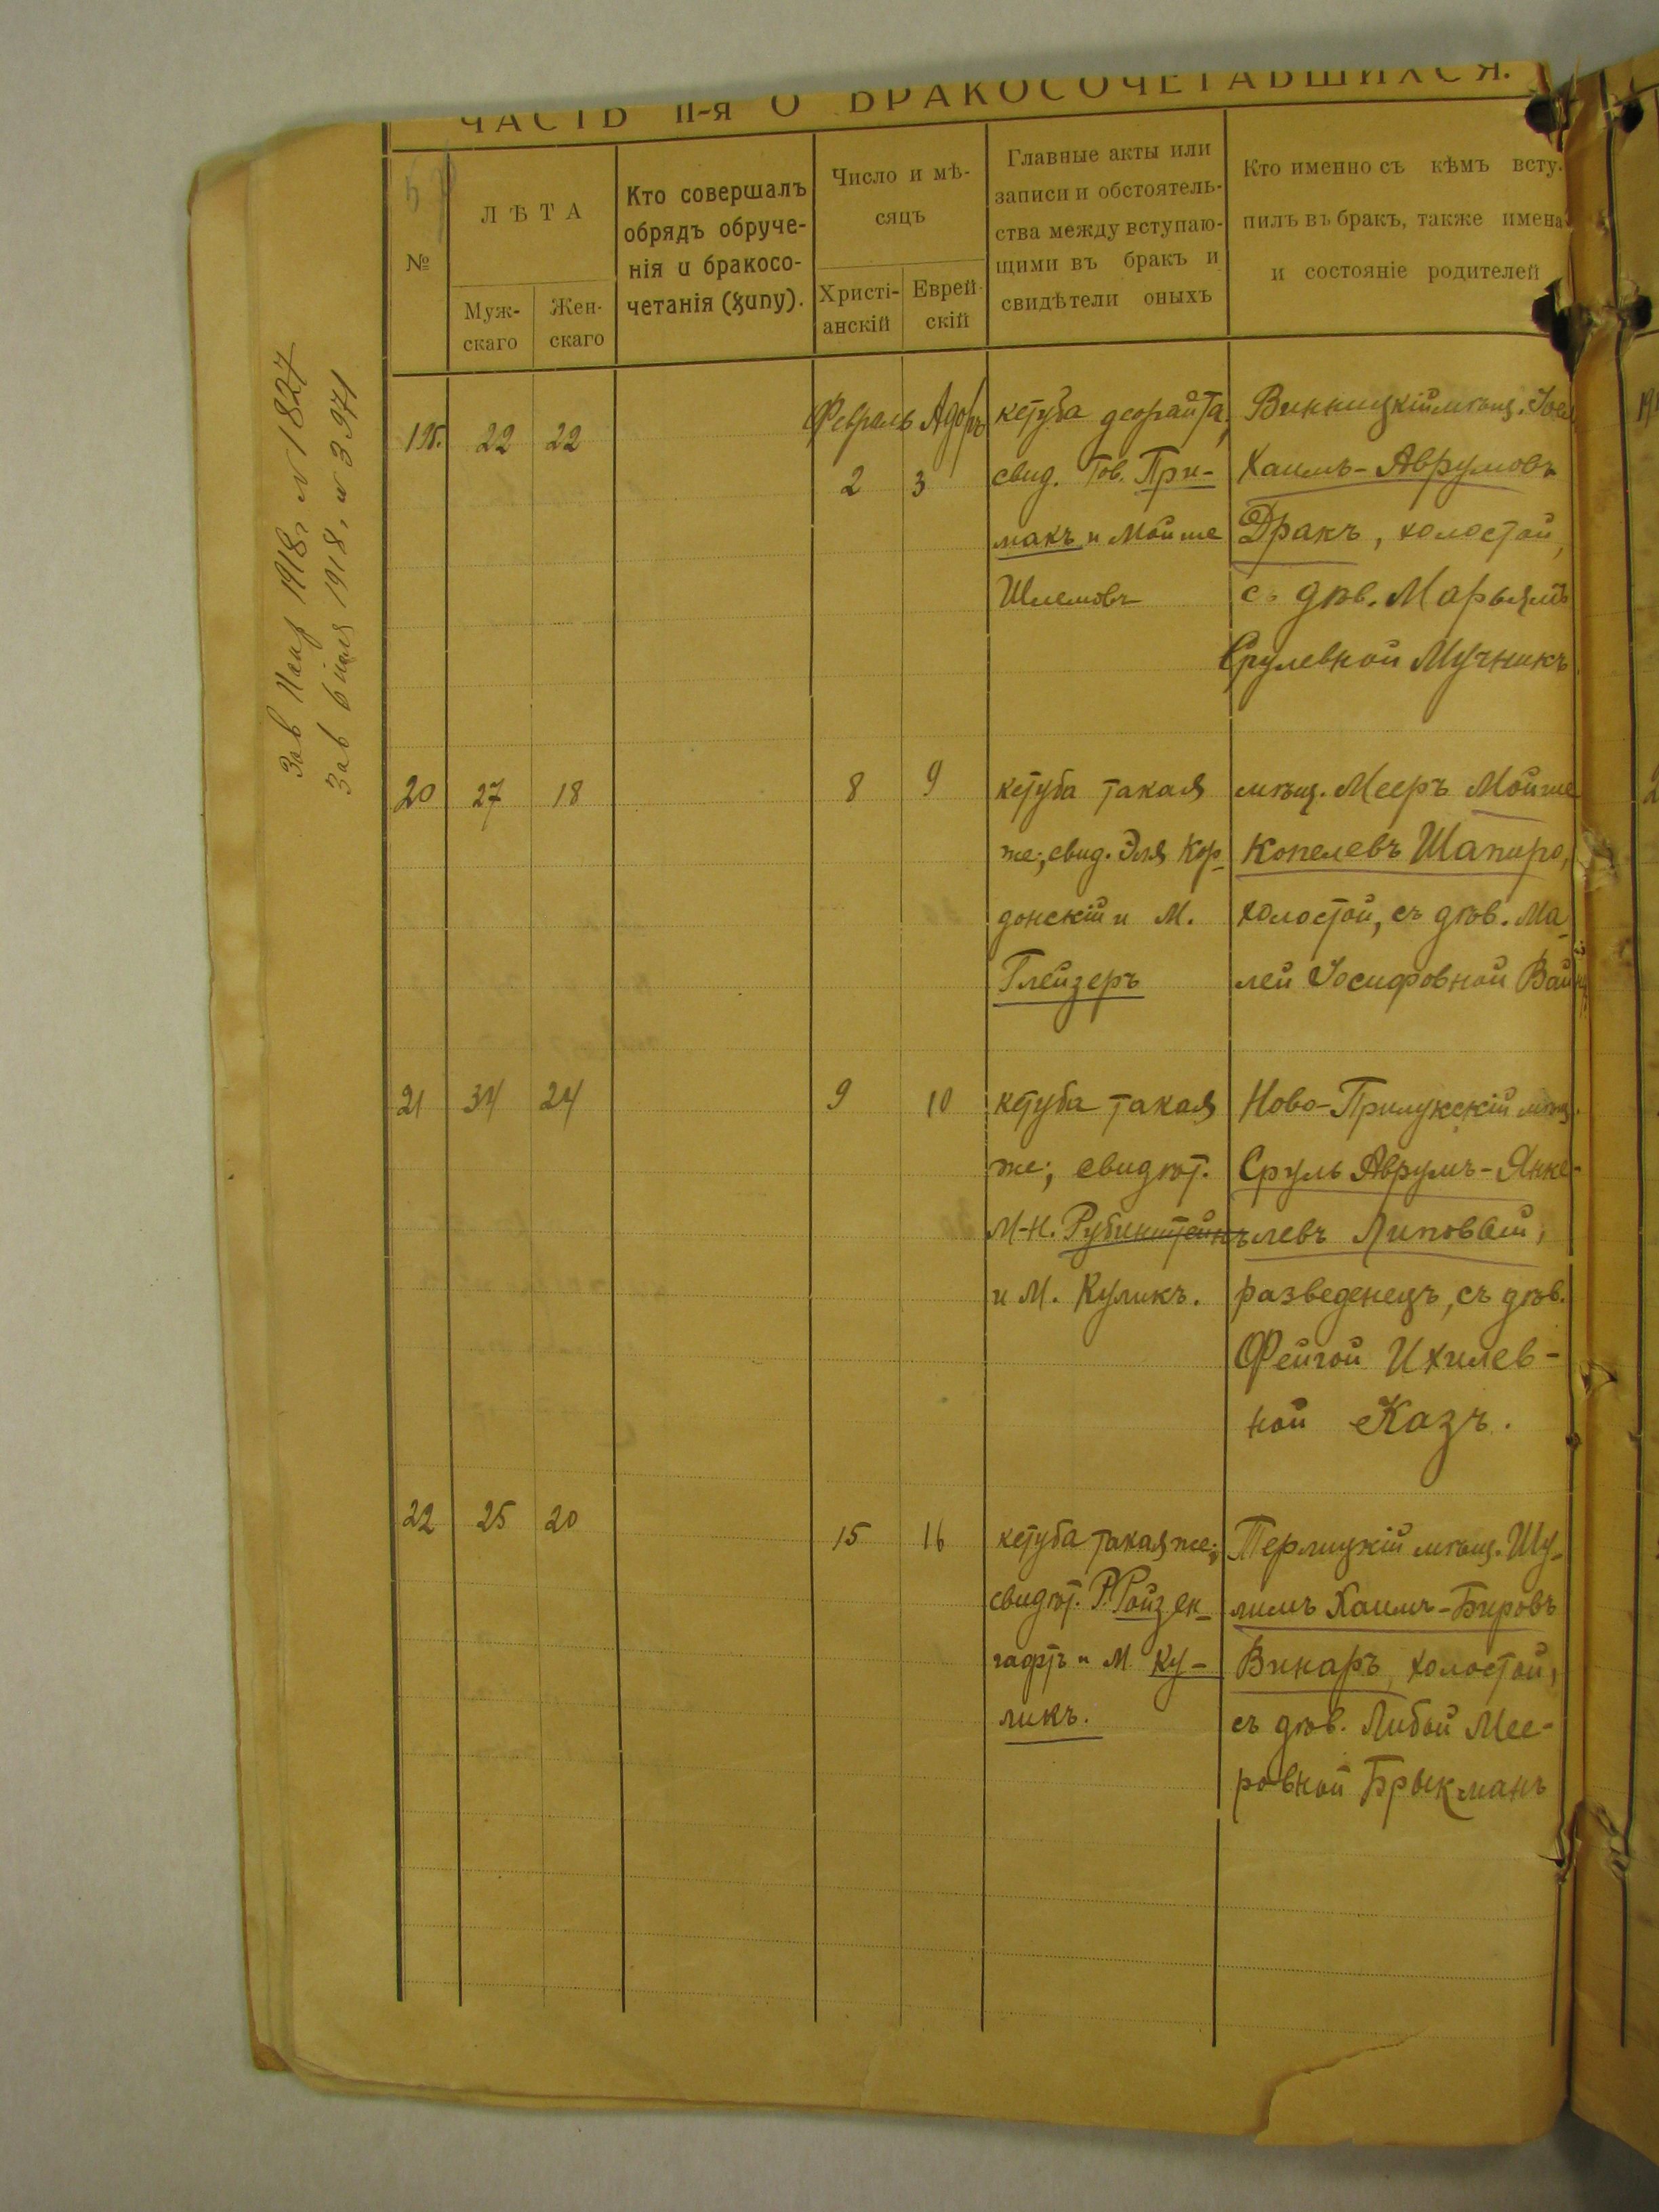 ЧАСТЬ II-я О БРАКОСОЧЕТАВШИХСЯ.
№
ЛѢТА
Муж-
скаго
Жен-
скаго
Кто совершалъ
обрядъ обруче-
нія и бракосо-
четанія (хупу).
Число и мѣ-
сяцъ
Христі-
анскій
Еврей-
скій
Главные акты или
записи и обстоятель-
ства между вступаю-
щими въ бракъ и
свидѣтели оныхъ
Кто именно съ кѣмъ всту-
пилъ въ бракъ, также имена
и состояніе родителей
1918 г. № 1827
1918 г. № 3971
19. 22 22
Февраль Адоръ
2 3
кетуба деорайта,
свид. Тов. При-
макъ и Мойше
Шлемовъ
Винницкій мѣщ.
Хаимъ-Аврумовъ
Дракъ, холостой,
съ дѣв. Марьямъ
Срулевной Мучникъ
20 27 18
8 9
кетуба такая
же; свид. Эля Кор-
донскій и М.
Глейзеръ
мѣщ. Мееръ Мойше
Копелевъ Шапиро,
холостой, съ дѣв. Ма-
лей Іосифовной
21 34 24
9 10
кетуба такая
же; свидѣт.
М-Н. Рубинштейнъ
и М. Куликъ.
Ново-Прилукскій мѣщ.
Сруль Аврумъ-Янке-
левъ Липовый,
разведенецъ, съ дѣв.
Фейгой Ихилев-
ной Казъ.
22 25 20
15 16
кетуба такая же;
свидѣт. Р. Ройзен-
гафтъ и М. Ку-
ликъ.
Терлицкій мѣщ. Шу-
лимъ Хаимъ-Беровъ
Винаръ, холостой,
съ дѣв. Либой Мее-
ровной Брыкманъ